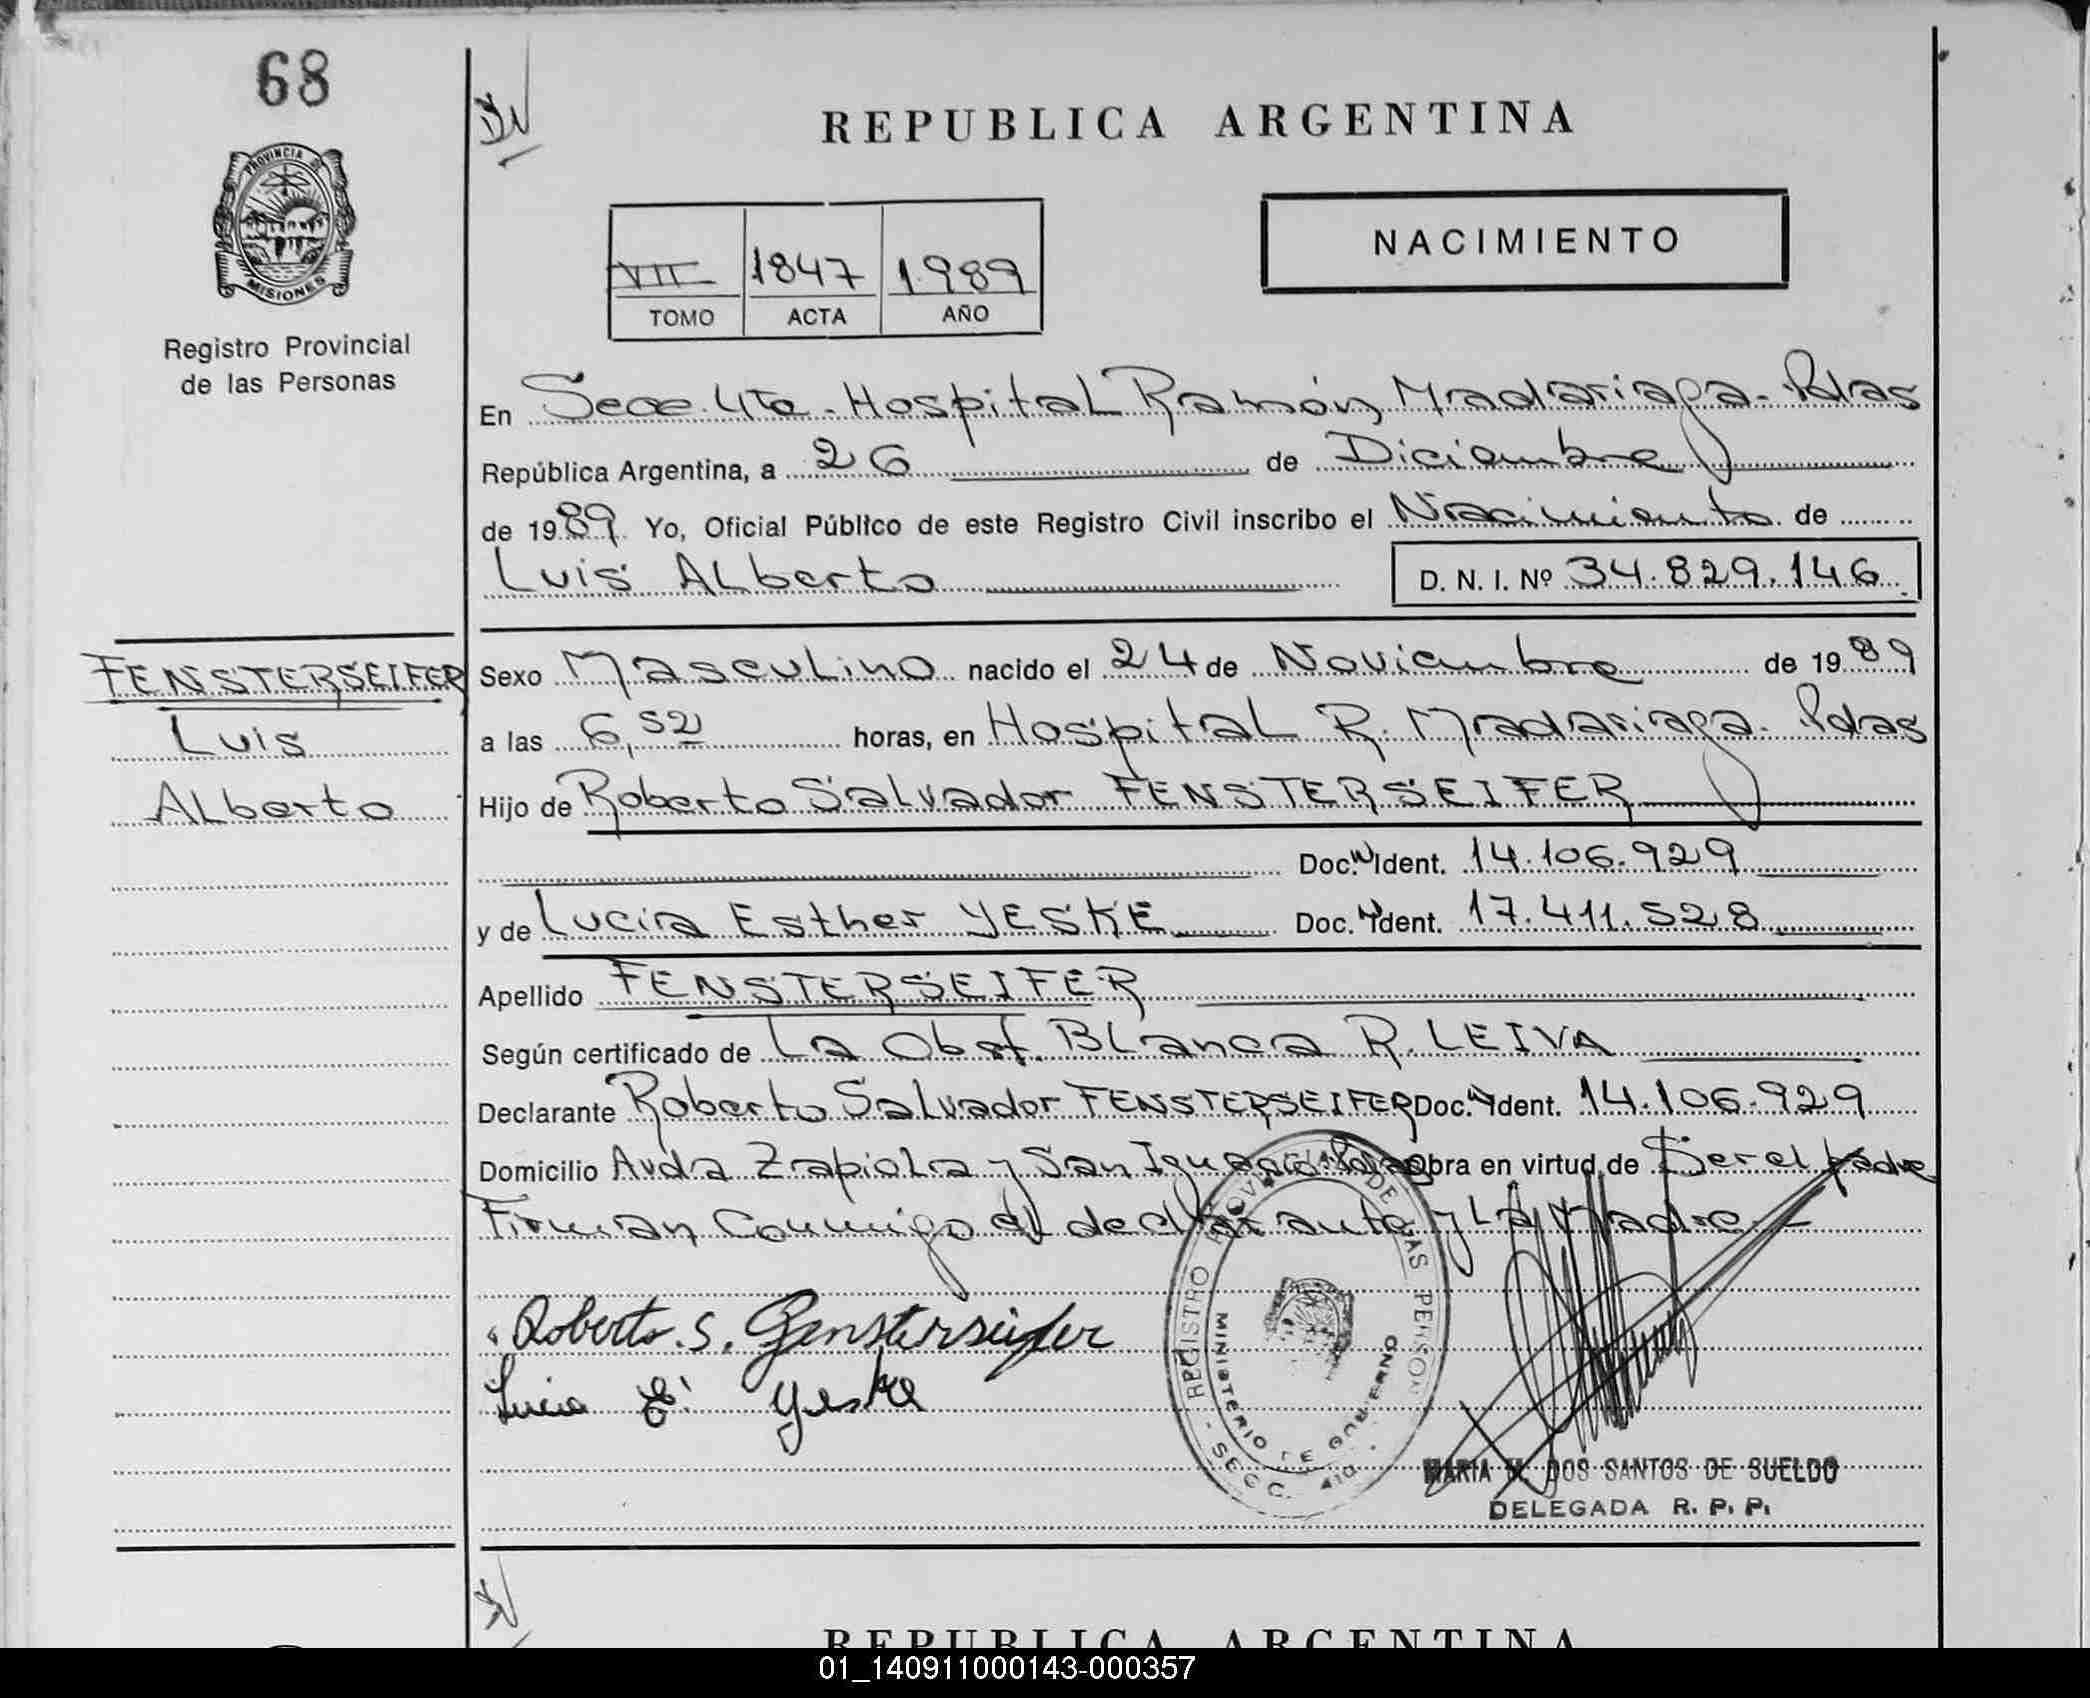 68
REPUBLICA ARGENTINA
PROVINCIA DE
MISIONES
Registro Provincial
de las Personas
NACIMIENTO
VII 1847 1989
TOMO ACTA AÑO
En Secc. 4ta. Hospital Ramón Madariaga. Pdas
República Argentina, a 26 de Diciembre
de 1989 Yo, Oficial Público de este Registro Civil inscribo el Nacimiento de
Luis Alberto D. N. I. Nº 34.829.146
FENSTERSEIFER
Luis
Alberto
Sexo Masculino nacido el 24 de Noviembre de 1989
a las 6,52 horas, en Hospital R. Madariaga. Pdas
Hijo de Roberto Salvador FENSTERSEIFER
Doc. N Ident. 14.106.929
y de Lucia Esther YESKE Doc. N Ident. 17.411.528
Apellido FENSTERSEIFER
Según certificado de La Obst. Blanca R. LEIVA
Declarante Roberto Salvador FENSTERSEIFER Doc. N Ident. 14.106.929
Domicilio Avda Zapiola y San Ignacio. Pdas Obra en virtud de Ser el padre
Firman Conmigo el declarante y La Madre.-
Roberto. S. Fensterseifer
Lucia E. Yeske
REGISTRO PROVINCIAL DE LAS PERSONAS
MINISTERIO DE GOBIERNO
SECC. 4ta.
MARIA M. DOS SANTOS DE SUELDO
DELEGADA R. P. P.
REPUBLICA ARGENTINA
01_140911000143-000357